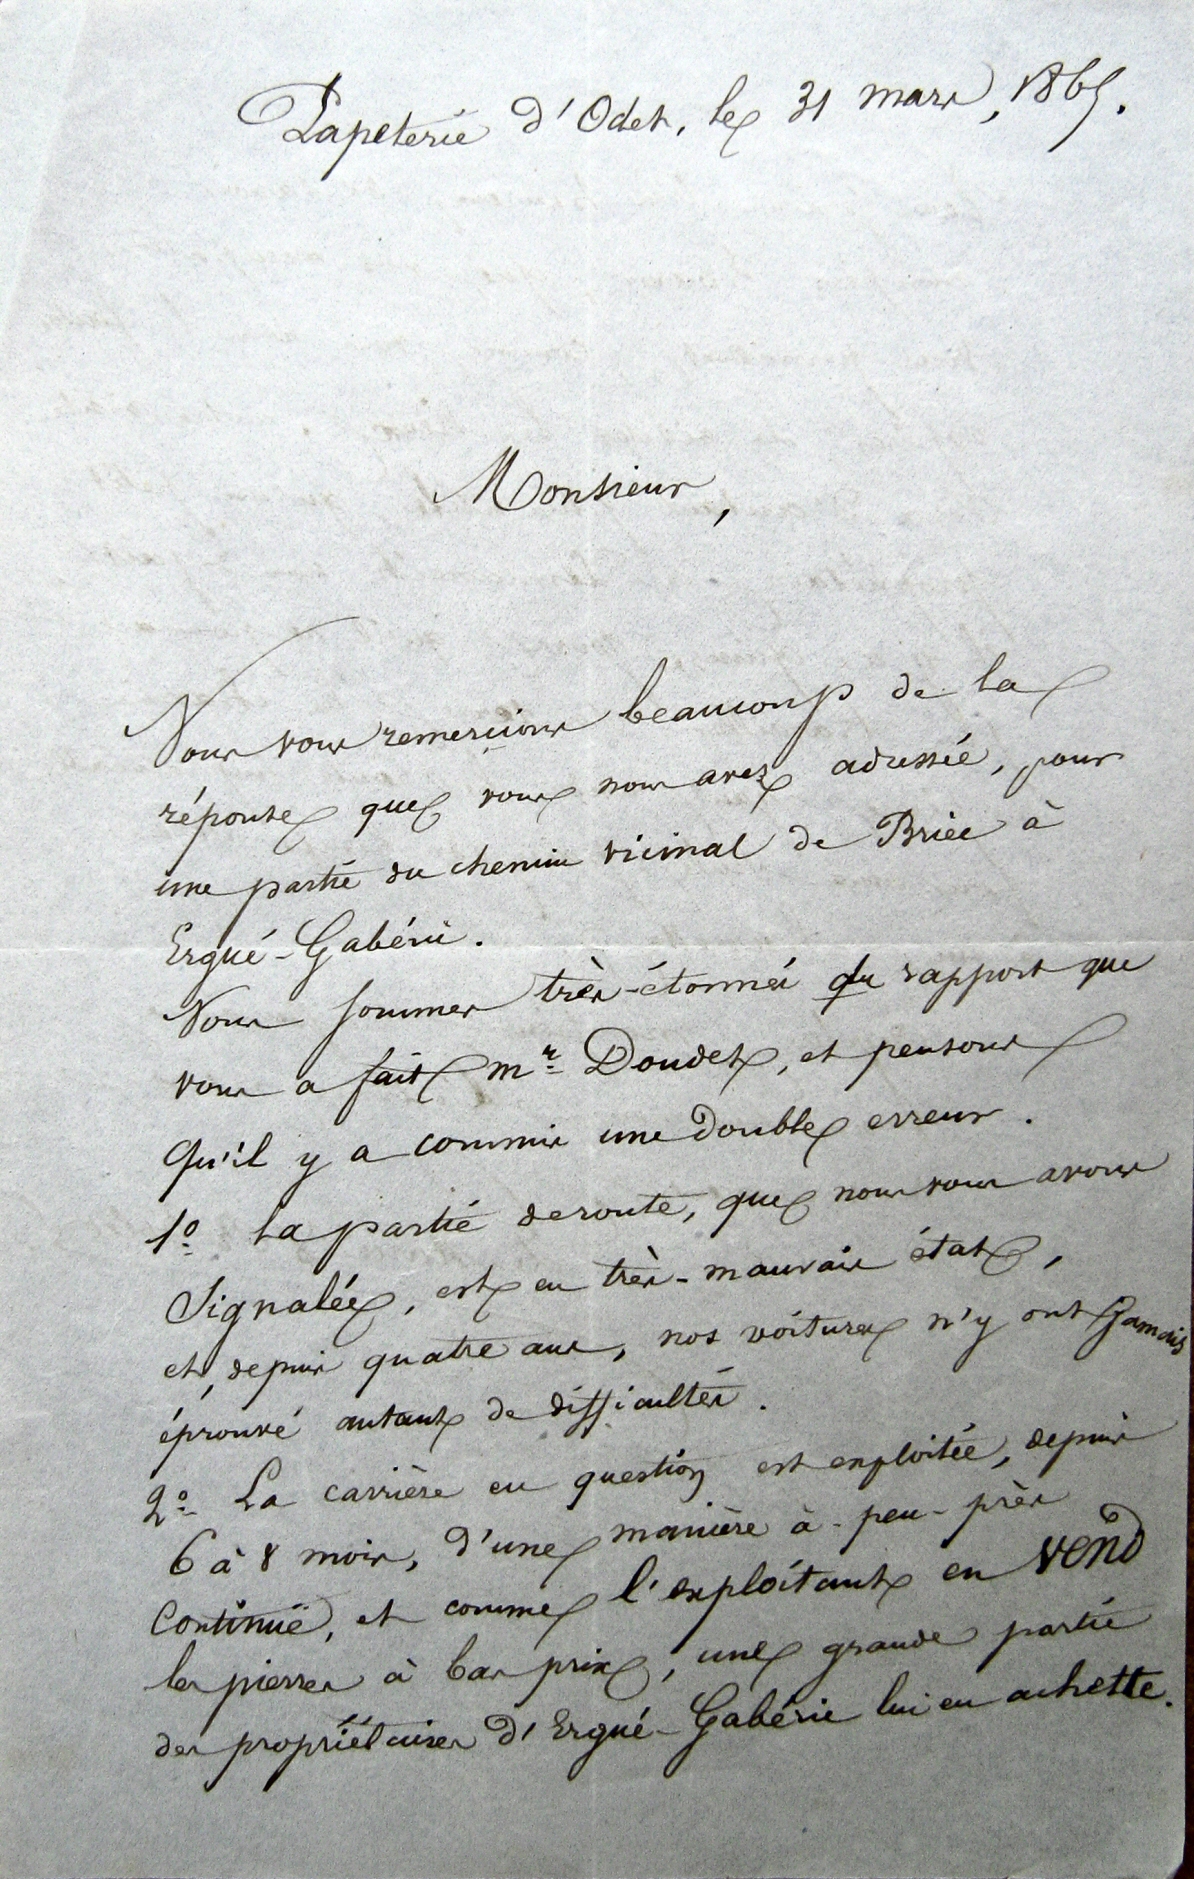 Papeterie d'Odet, le 31 mars, 1865.
Monsieur,
Nous vous remercions beaucoup de la
réponse que vous nous avez adressée, pour
une partie du chemin vicinal de Briec à
Ergué-Gabéric.
Nous sommes très-étonnés du rapport que
vous a fait Mr Doudet, et pensons
qu'il y a commis une double erreur.
1º La partie de route, que nous vous avons
signalée, est en très-mauvais état,
et, depuis quatre ans, nos voitures n'y ont jamais
éprouvé autant de difficultés.
2º La carrière en question est exploitée, depuis
6 à 8 mois, d'une manière à-peu-près
continue, et comme l'exploitant en vend
les pierres à bas prix, une grande partie
des propriétaires d'Ergué-Gabéric lui en achette.